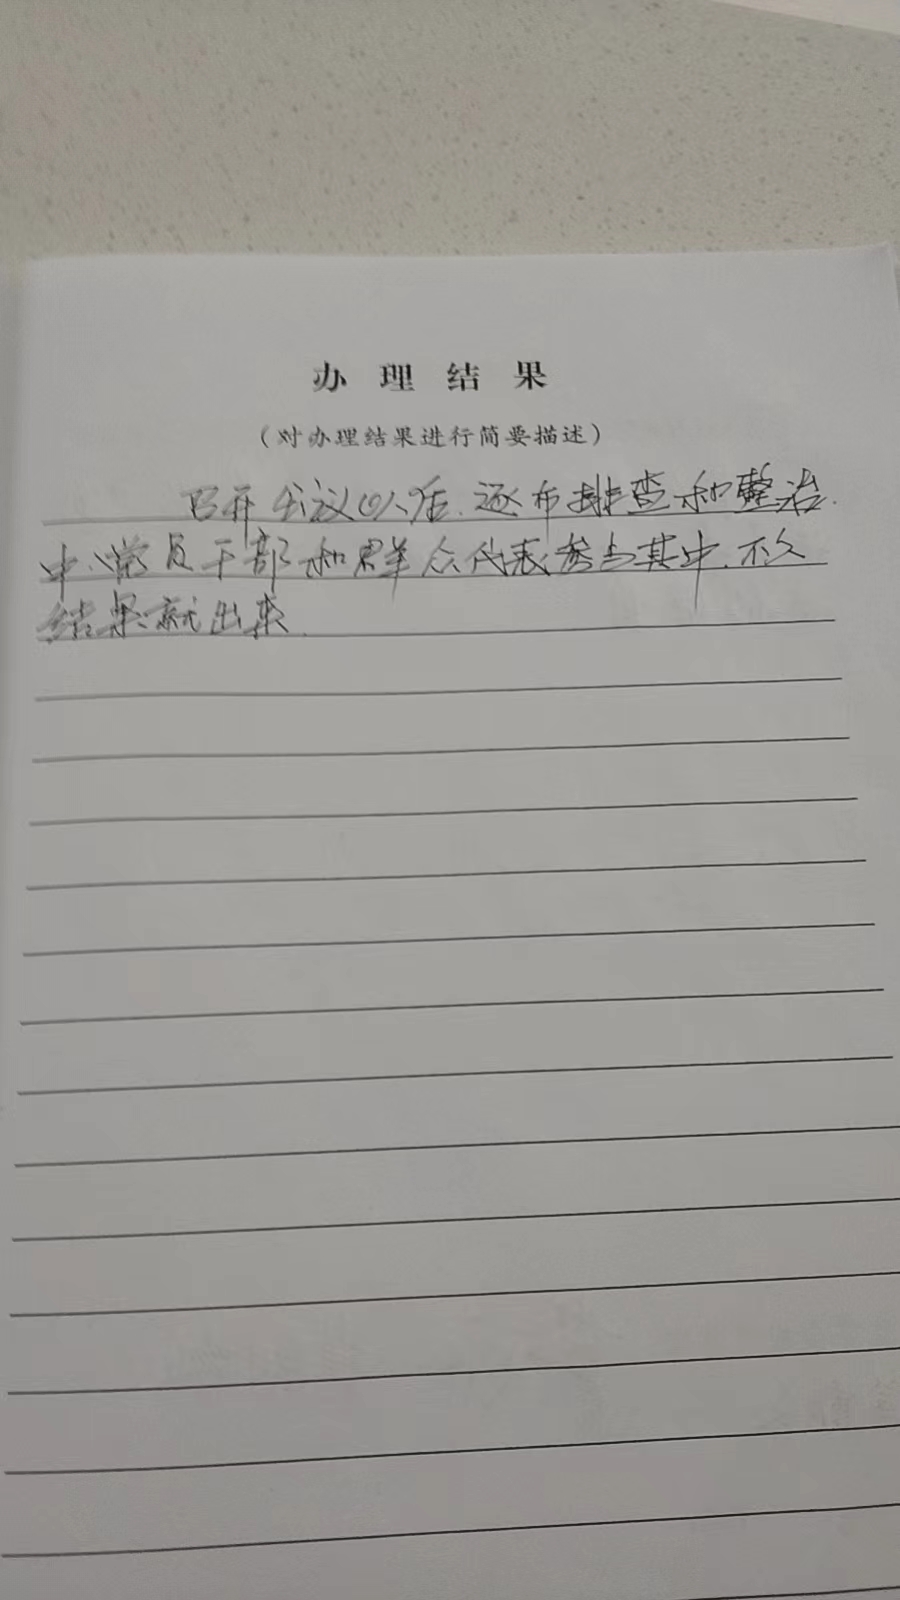 办理结果
（对办理结果进行简要描述）
召开会议以后.逐步排查和整治.
中心党员干部和群众代表参与其中.不久
结果就出来.